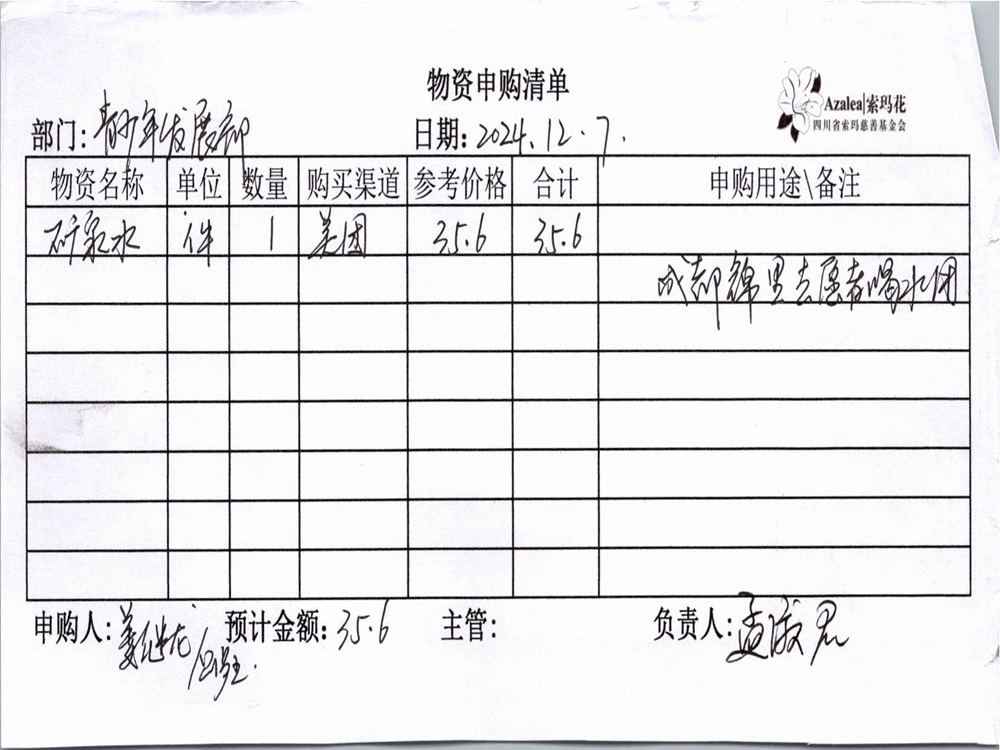 物资申购清单
Azalea|索玛花
四川省索玛慈善基金会
部门：青少年发展部 日期：2024.12.7.
物资名称 单位 数量 购买渠道 参考价格 合计 申购用途\备注
矿泉水 件 1 美团 35.6 35.6
成都锦里志愿者喝水用
申购人： 预计金额：35.6 主管： 负责人：孟淑君